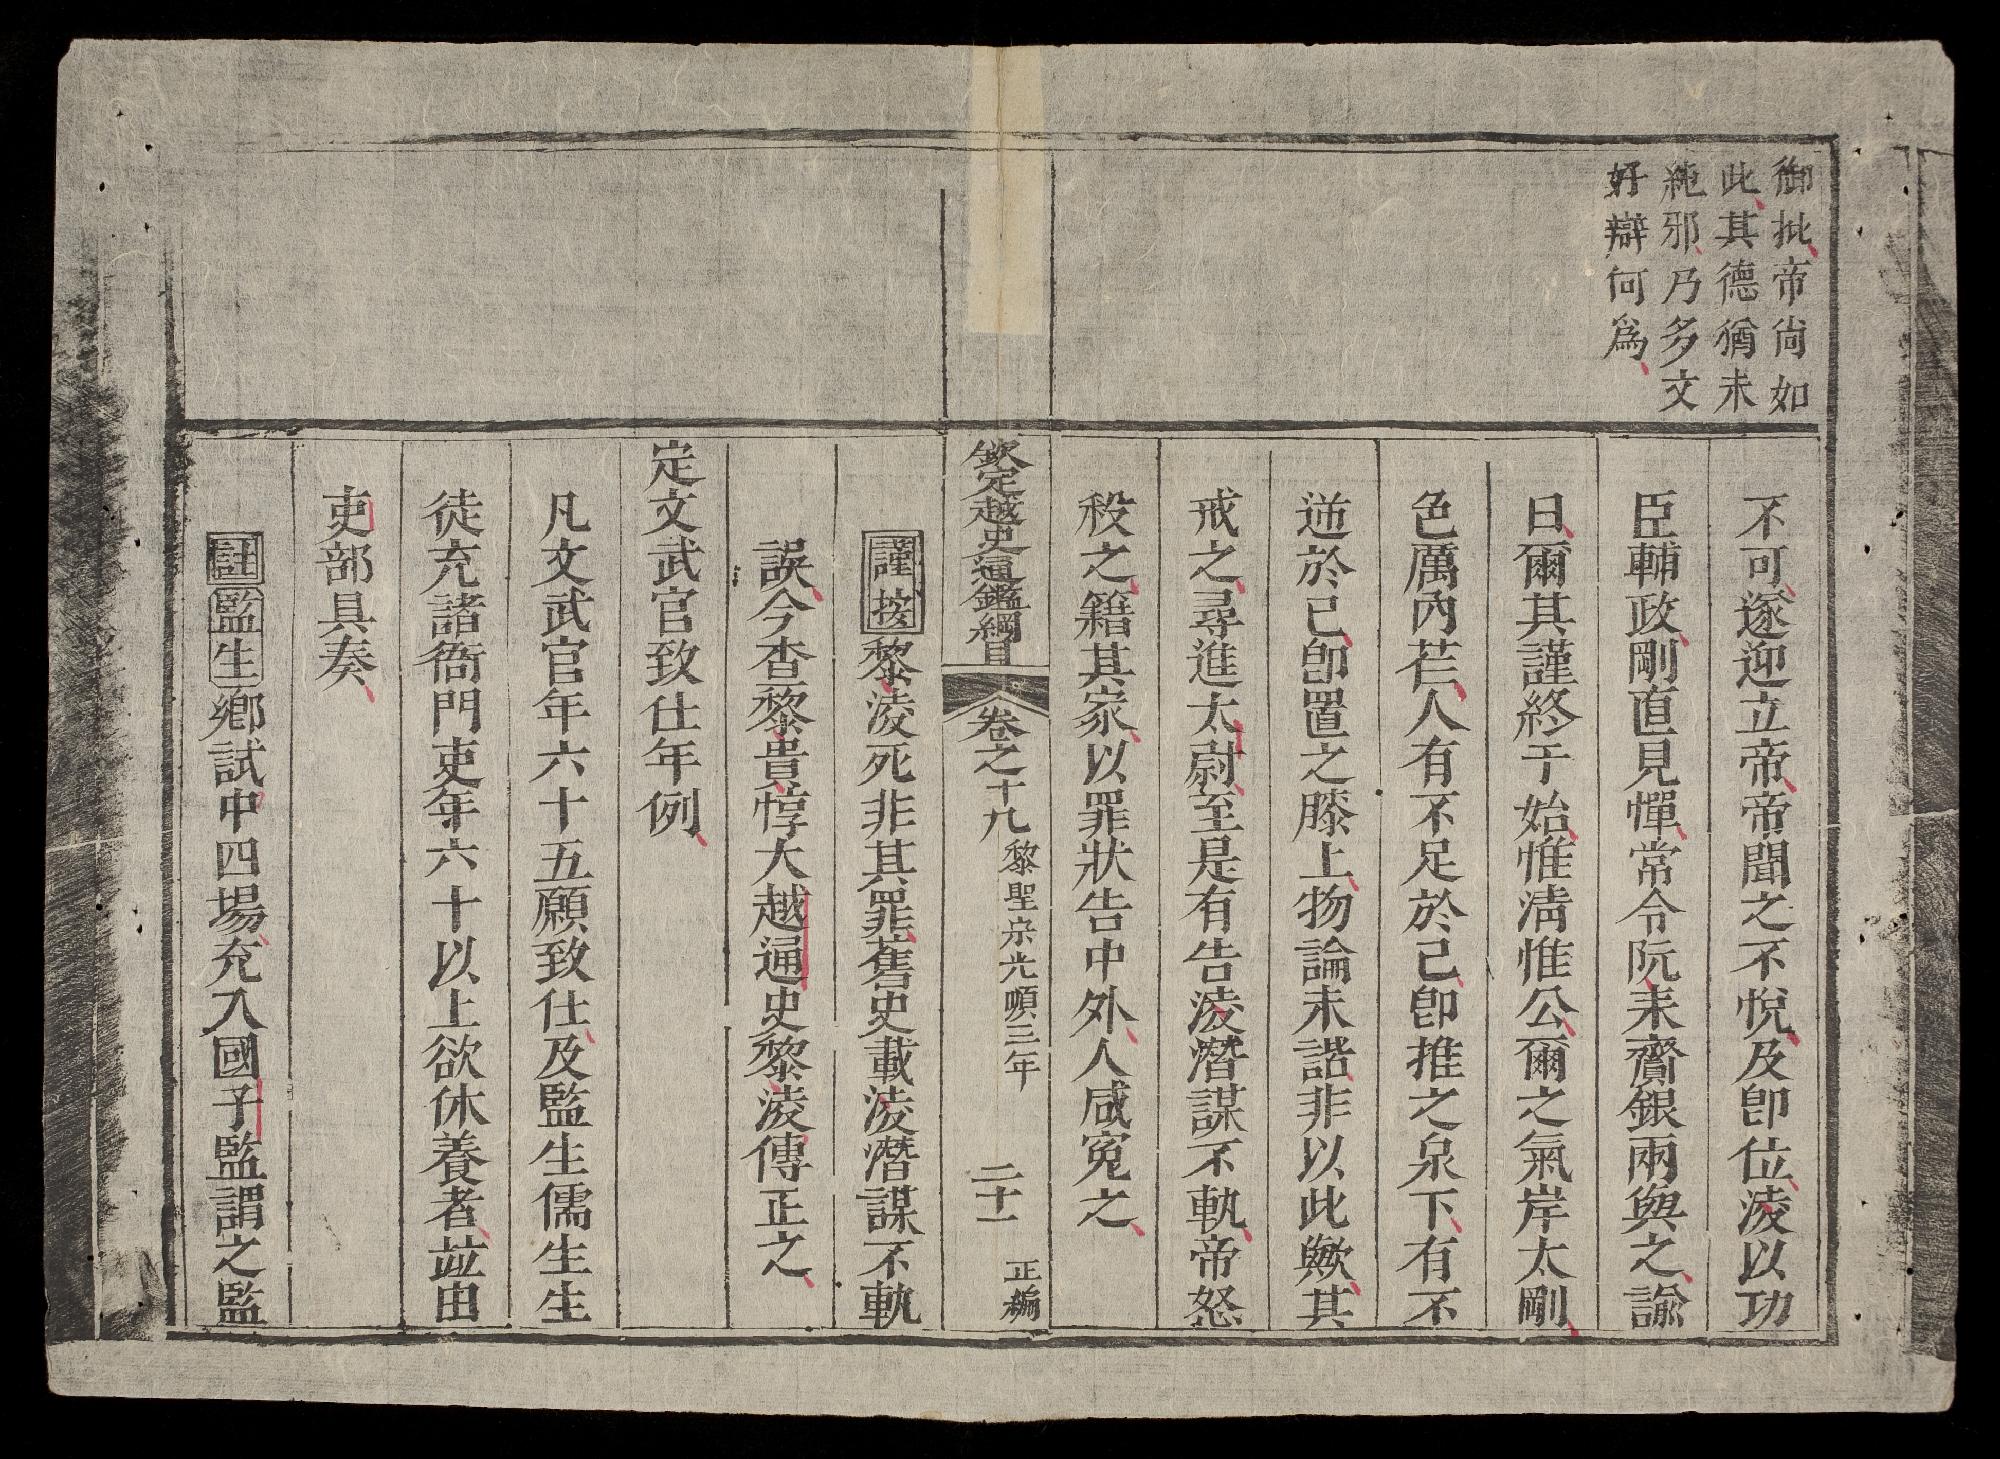 御批帝尚如
此其德猶未
純邪乃多文
好辯何爲
不可遂迎立帝帝聞之不悅及卽位淩以功
臣輔政剛直見憚常令阮耒齎銀兩與之諭
曰爾其謹終于始惟淸惟公爾之氣岸太剛
色厲內荏人有不足於己卽推之泉下有不
逆於己卽置之膝上物論未諧非以此歟其
戒之尋進太尉至是有告淩潛謀不軌帝怒
殺之籍其家以罪狀告中外人咸冤之
欽定越史通鑑綱目 卷之十九 黎聖宗光順三年 二十一 正編
謹按黎淩死非其罪舊史載淩潛謀不軌
誤今查黎貴惇大越通史黎淩傳正之
定文武官致仕年例
凡文武官年六十五願致仕及監生儒生生
徒充諸衙門吏年六十以上欲休養者並由
吏部具奏
註監生鄉試中四場充入國子監謂之監